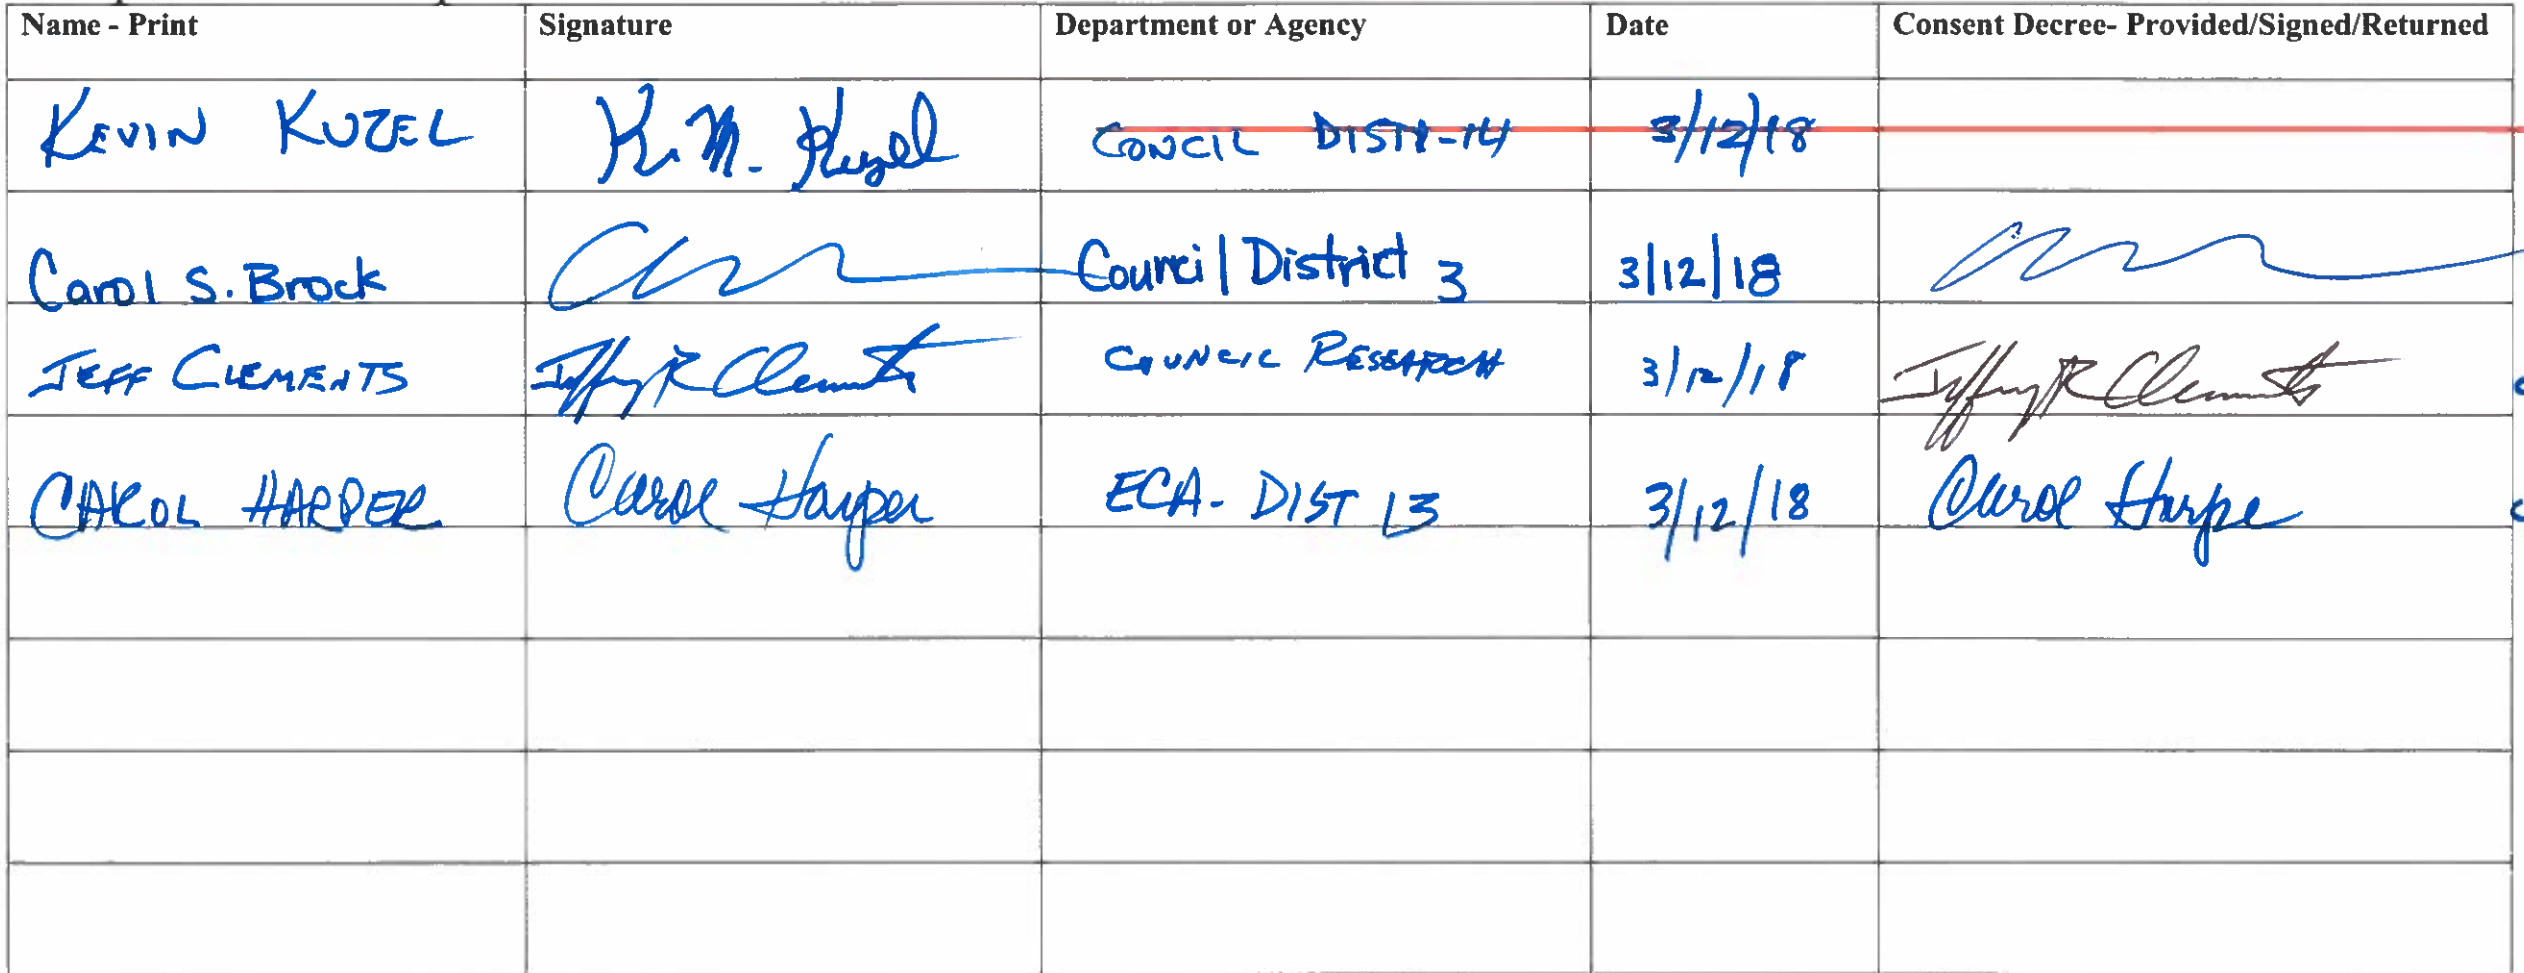 Name - Print Signature Department or Agency Date Consent Decree- Provided/Signed/Returned
KEVIN KUZEL K. M. Kuzel CONCIL DISTR-14 3/12/18
Carol S. Brock Council District 3 3/12/18
JEFF CLEMENTS Jeffrey R Clements COUNCIL RESEARCH 3/12/18 Jeffrey R Clements
CAROL HARPER Carol Harper ECA- DIST 13 3/12/18 Carol Harpe